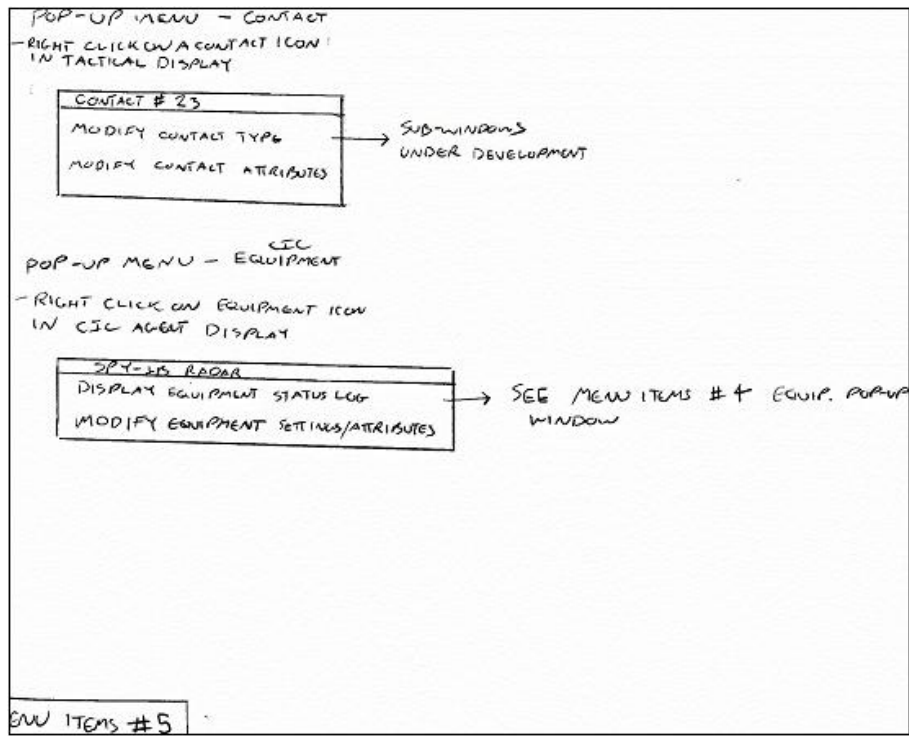 POP-UP MENU - CONTACT
- RIGHT CLICK ON A CONTACT ICON
IN TACTICAL DISPLAY
CONTACT # 23
MODIFY CONTACT TYPE
MODIFY CONTACT ATTRIBUTES
SUB-WINDOWS
UNDER DEVELOPMENT
POP-UP MENU - CIC EQUIPMENT
- RIGHT CLICK ON EQUIPMENT ICON
IN CIC AGENT DISPLAY
SPY-1B RADAR
DISPLAY EQUIPMENT STATUS LOG
MODIFY EQUIPMENT SETTINGS/ATTRIBUTES
SEE MENU ITEMS #4 EQUIP. POP-UP
WINDOW
ENU ITEMS #5